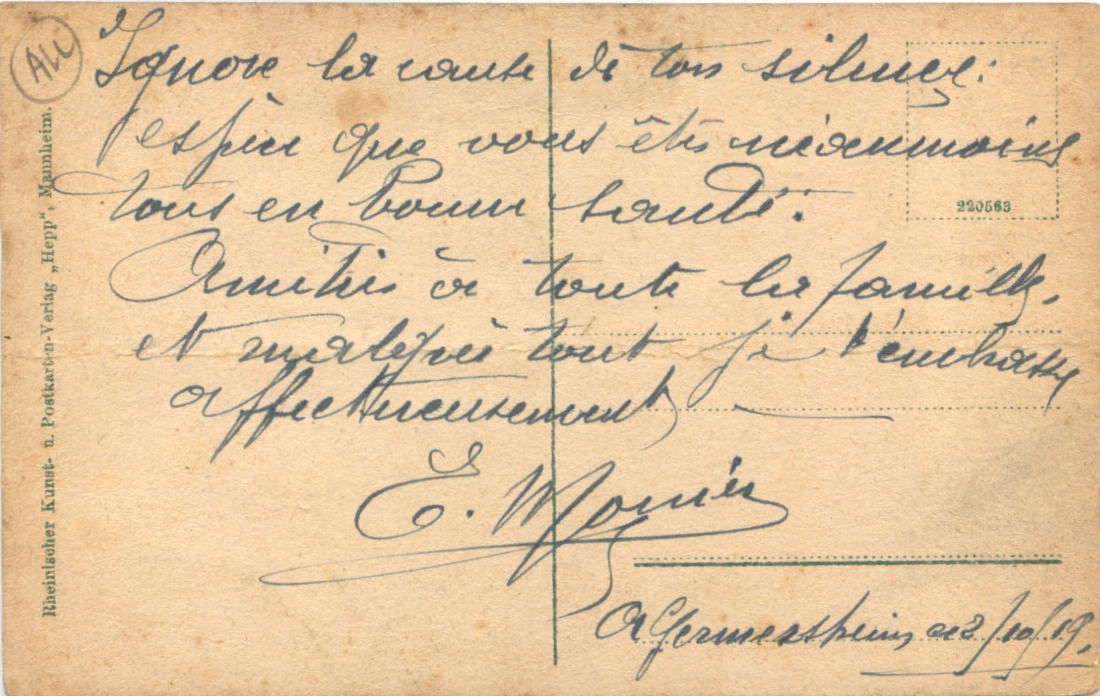 ALL
Ignore la cause de ton silence:
espère que vous êtes néanmoins
tous en bonne santé.
Amitiés à toute la famille,
et malgré tout je t'embrasse
affectueusement
E. Monier
A Germersheim /10/19.
220563
Rheinischer Kunst- u. Postkarten-Verlag „Hepp“, Mannheim.